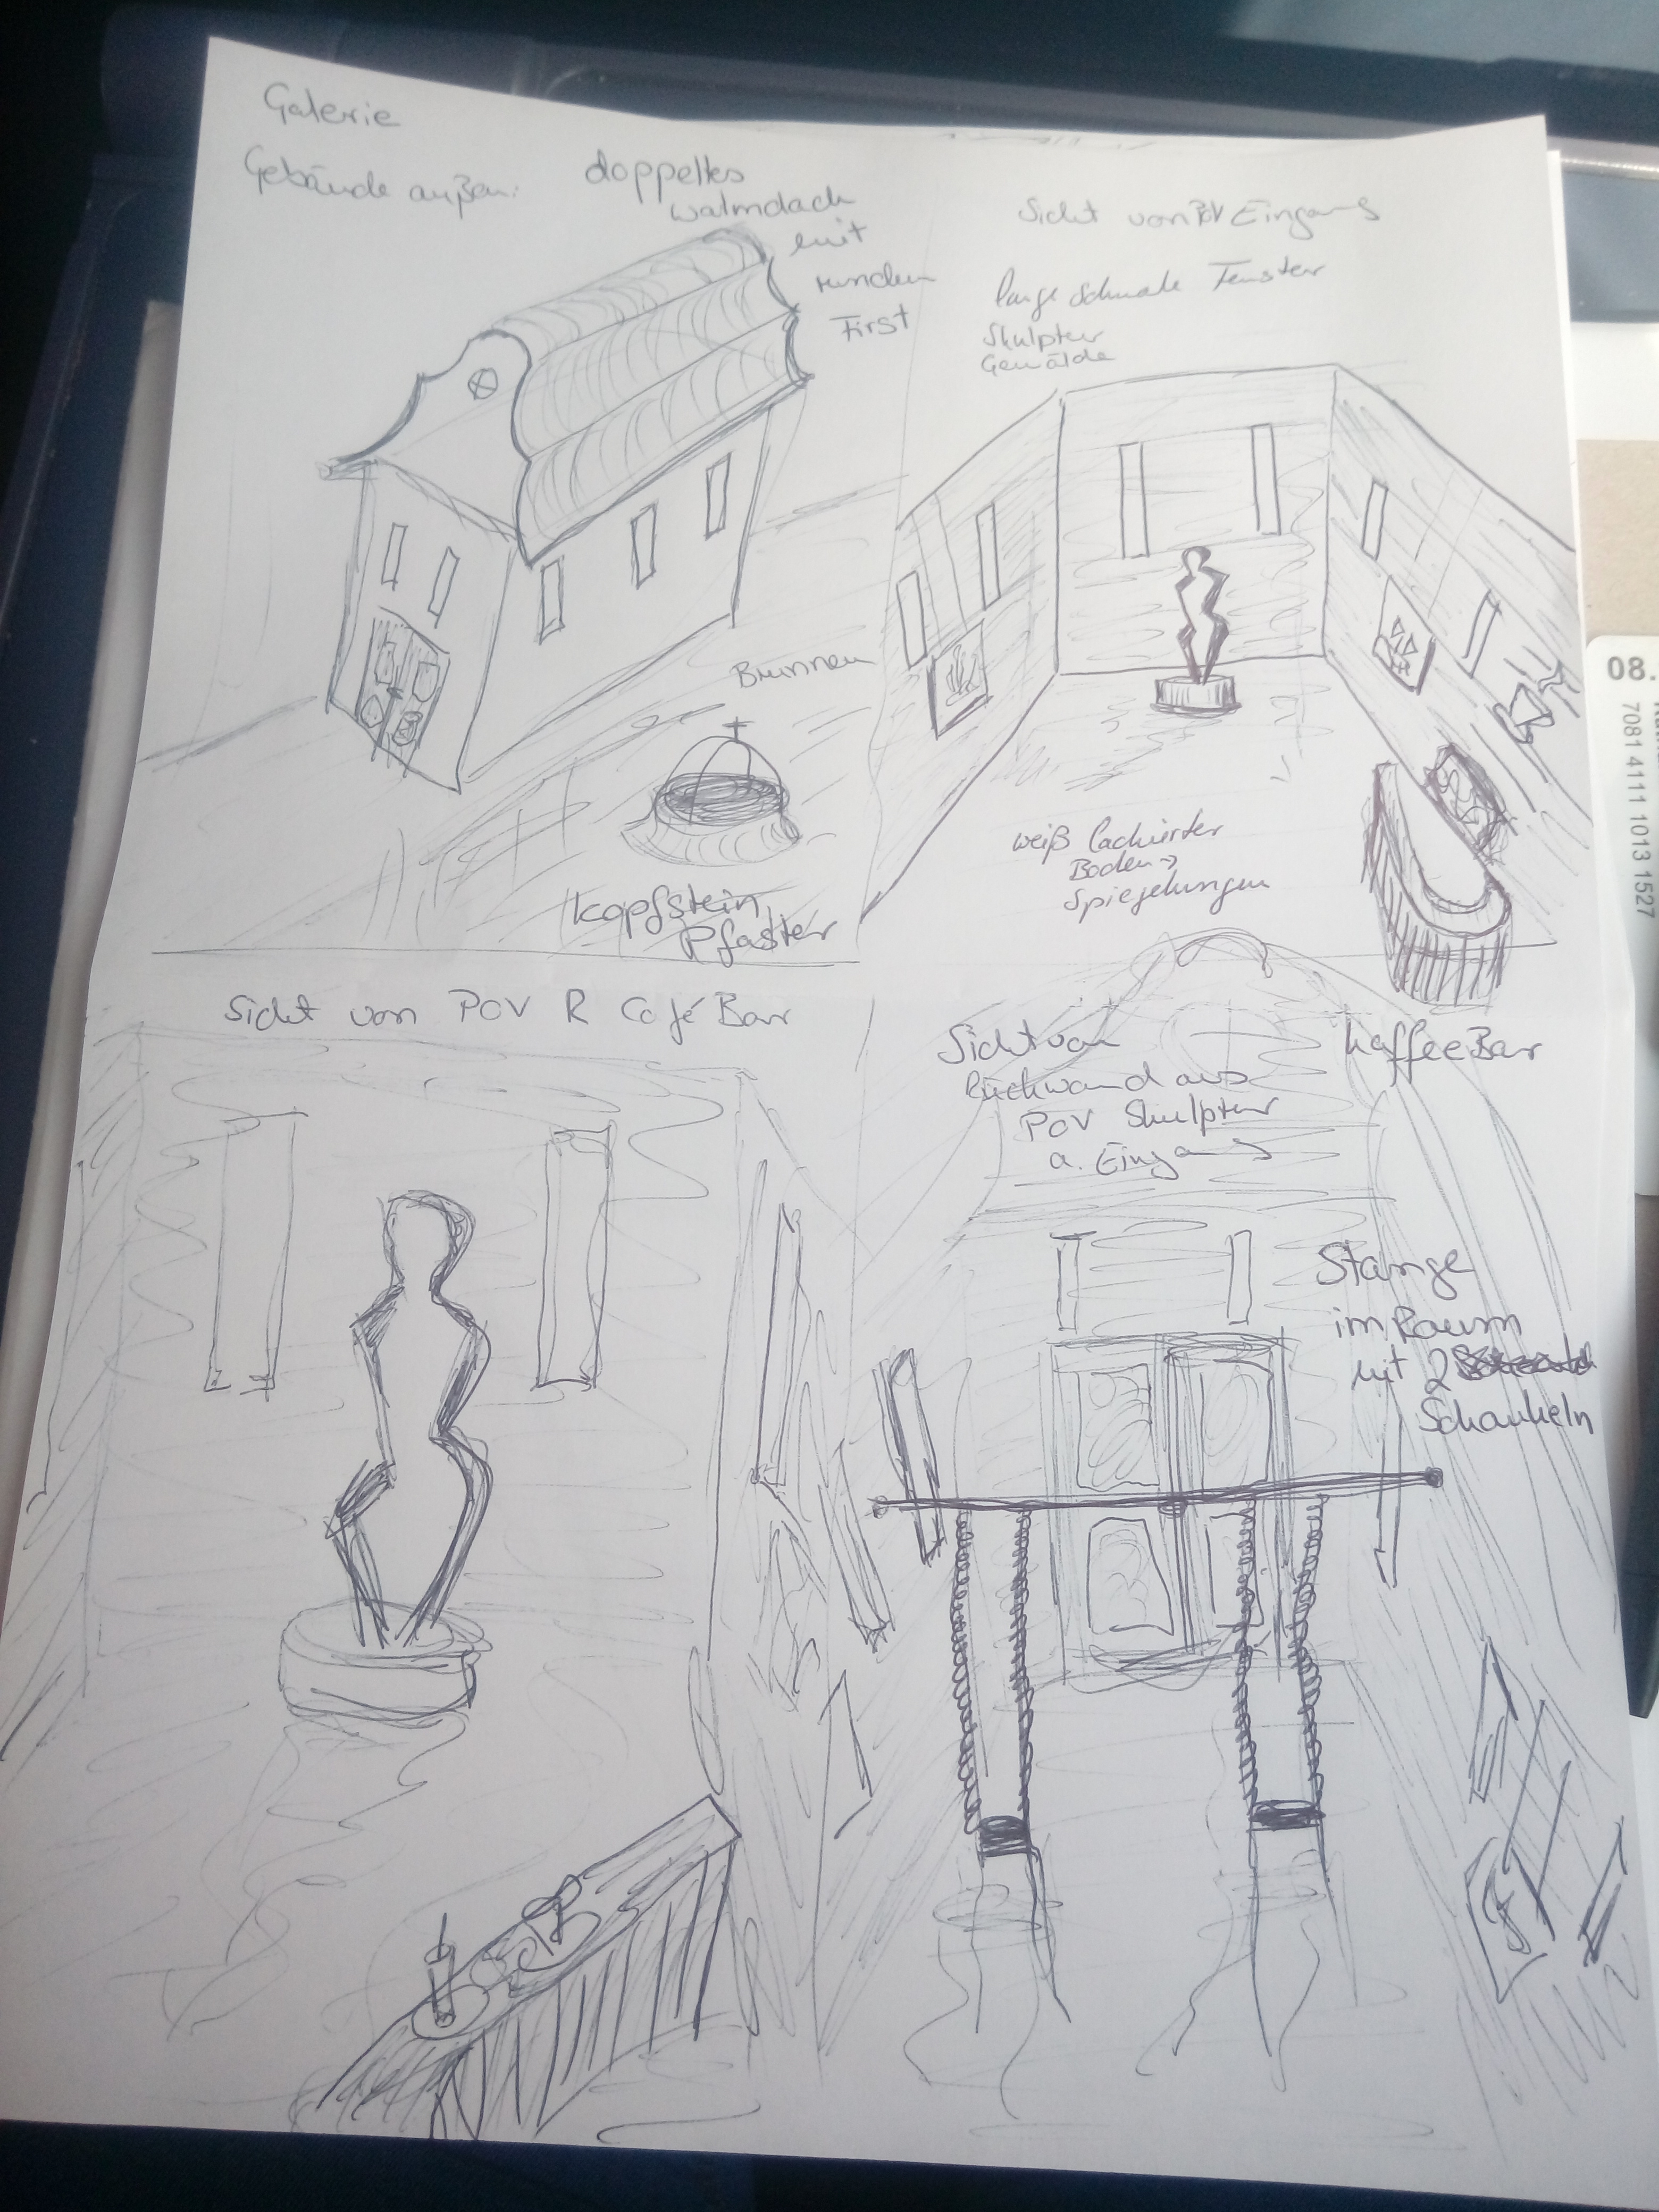 Galerie
Gebäude außen:
doppeltes
Walmdach
mit
runden
First
Brunnen
Kopfstein
Pflaster
Sicht von POV Eingang
lange schmale Fenster
Skulptur
Gemälde
weiß lackierter
Boden →
Spiegelungen
Kaffee Bar
Sicht von POV R Café Bar
Sicht von
Rückwand aus
POV Skulptur
a. Eingang
Stange
im Raum
mit 2
Schaukeln
08.
7081 4111 1013 1527